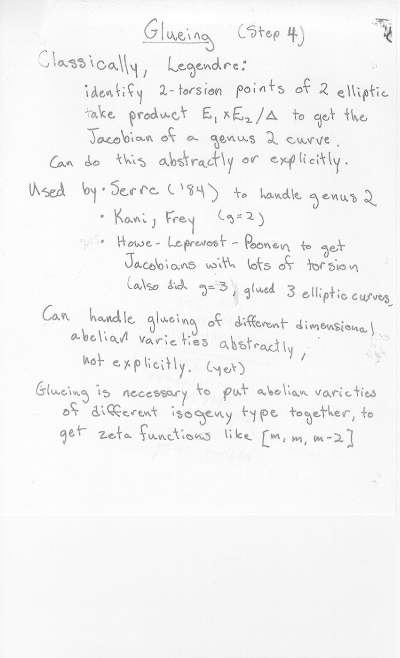 Glueing (Step 4)
Classically, Legendre:
identify 2-torsion points of 2 elliptic
take product E₁×E₂/Δ to get the
Jacobian of a genus 2 curve.
Can do this abstractly or explicitly.
Used by • Serre ('84) to handle genus 2
• Kani, Frey (g=2)
• Howe-Leprevost-Poonen to get
Jacobians with lots of torsion
(also did g=3, glued 3 elliptic curves
Can handle glueing of different dimensional
abelian varieties abstractly,
not explicitly. (yet)
Glueing is necessary to put abelian varieties
of different isogeny type together, to
get zeta functions like [m, m, m-2]